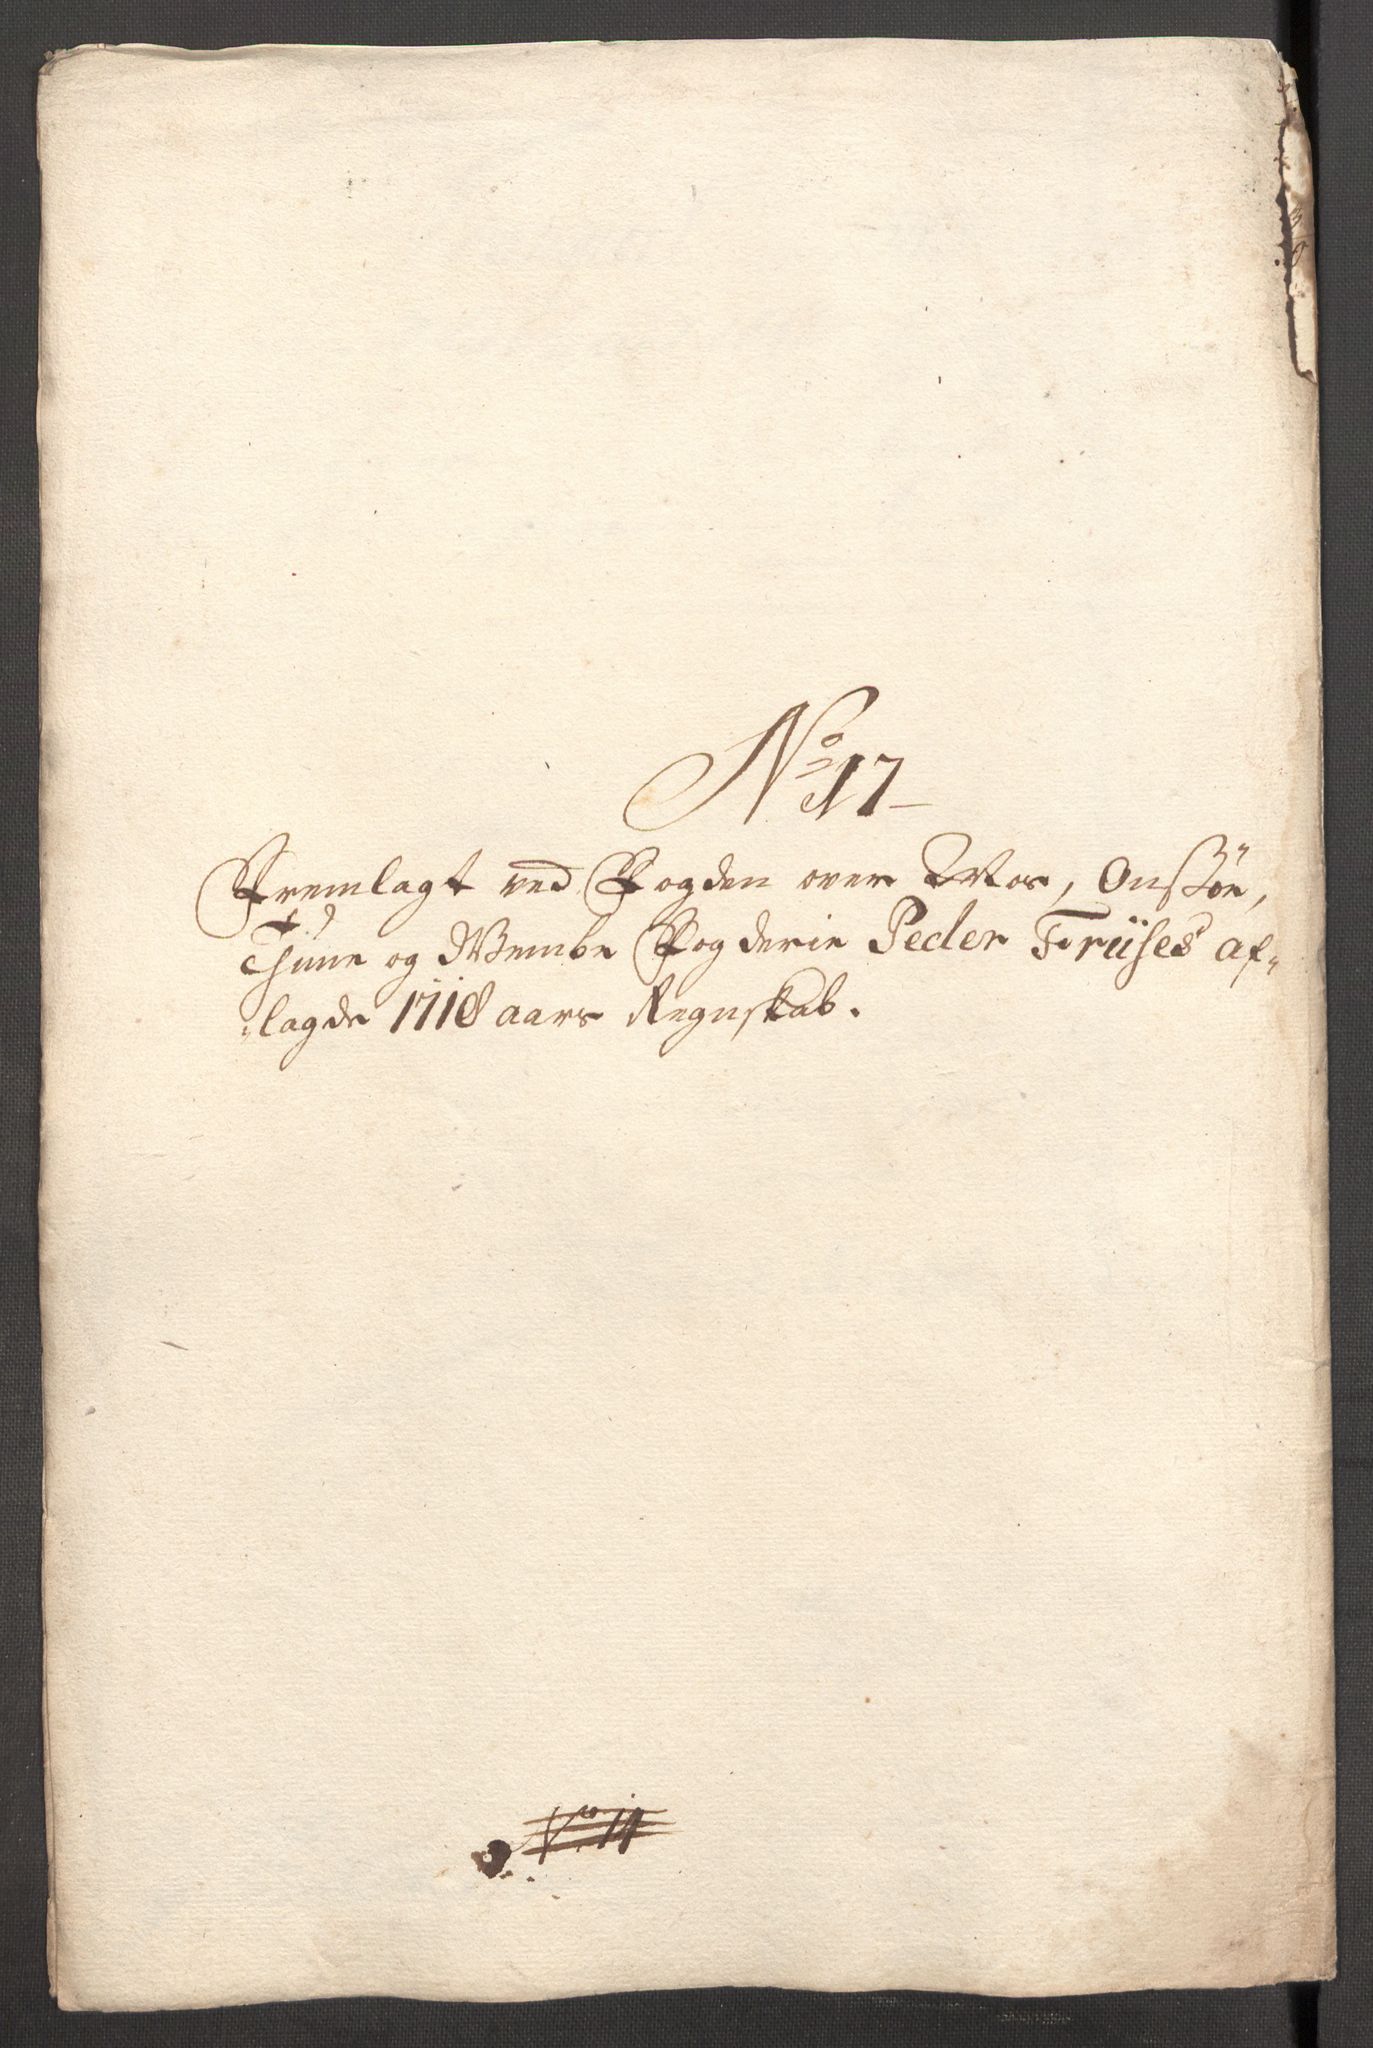 No 17
Fremlagt ved Fogden over Mos, Onsöe,
Thune og Wembe Fogderie Peder Friises af-
lagde 1718 aars Regnskab.
No 14